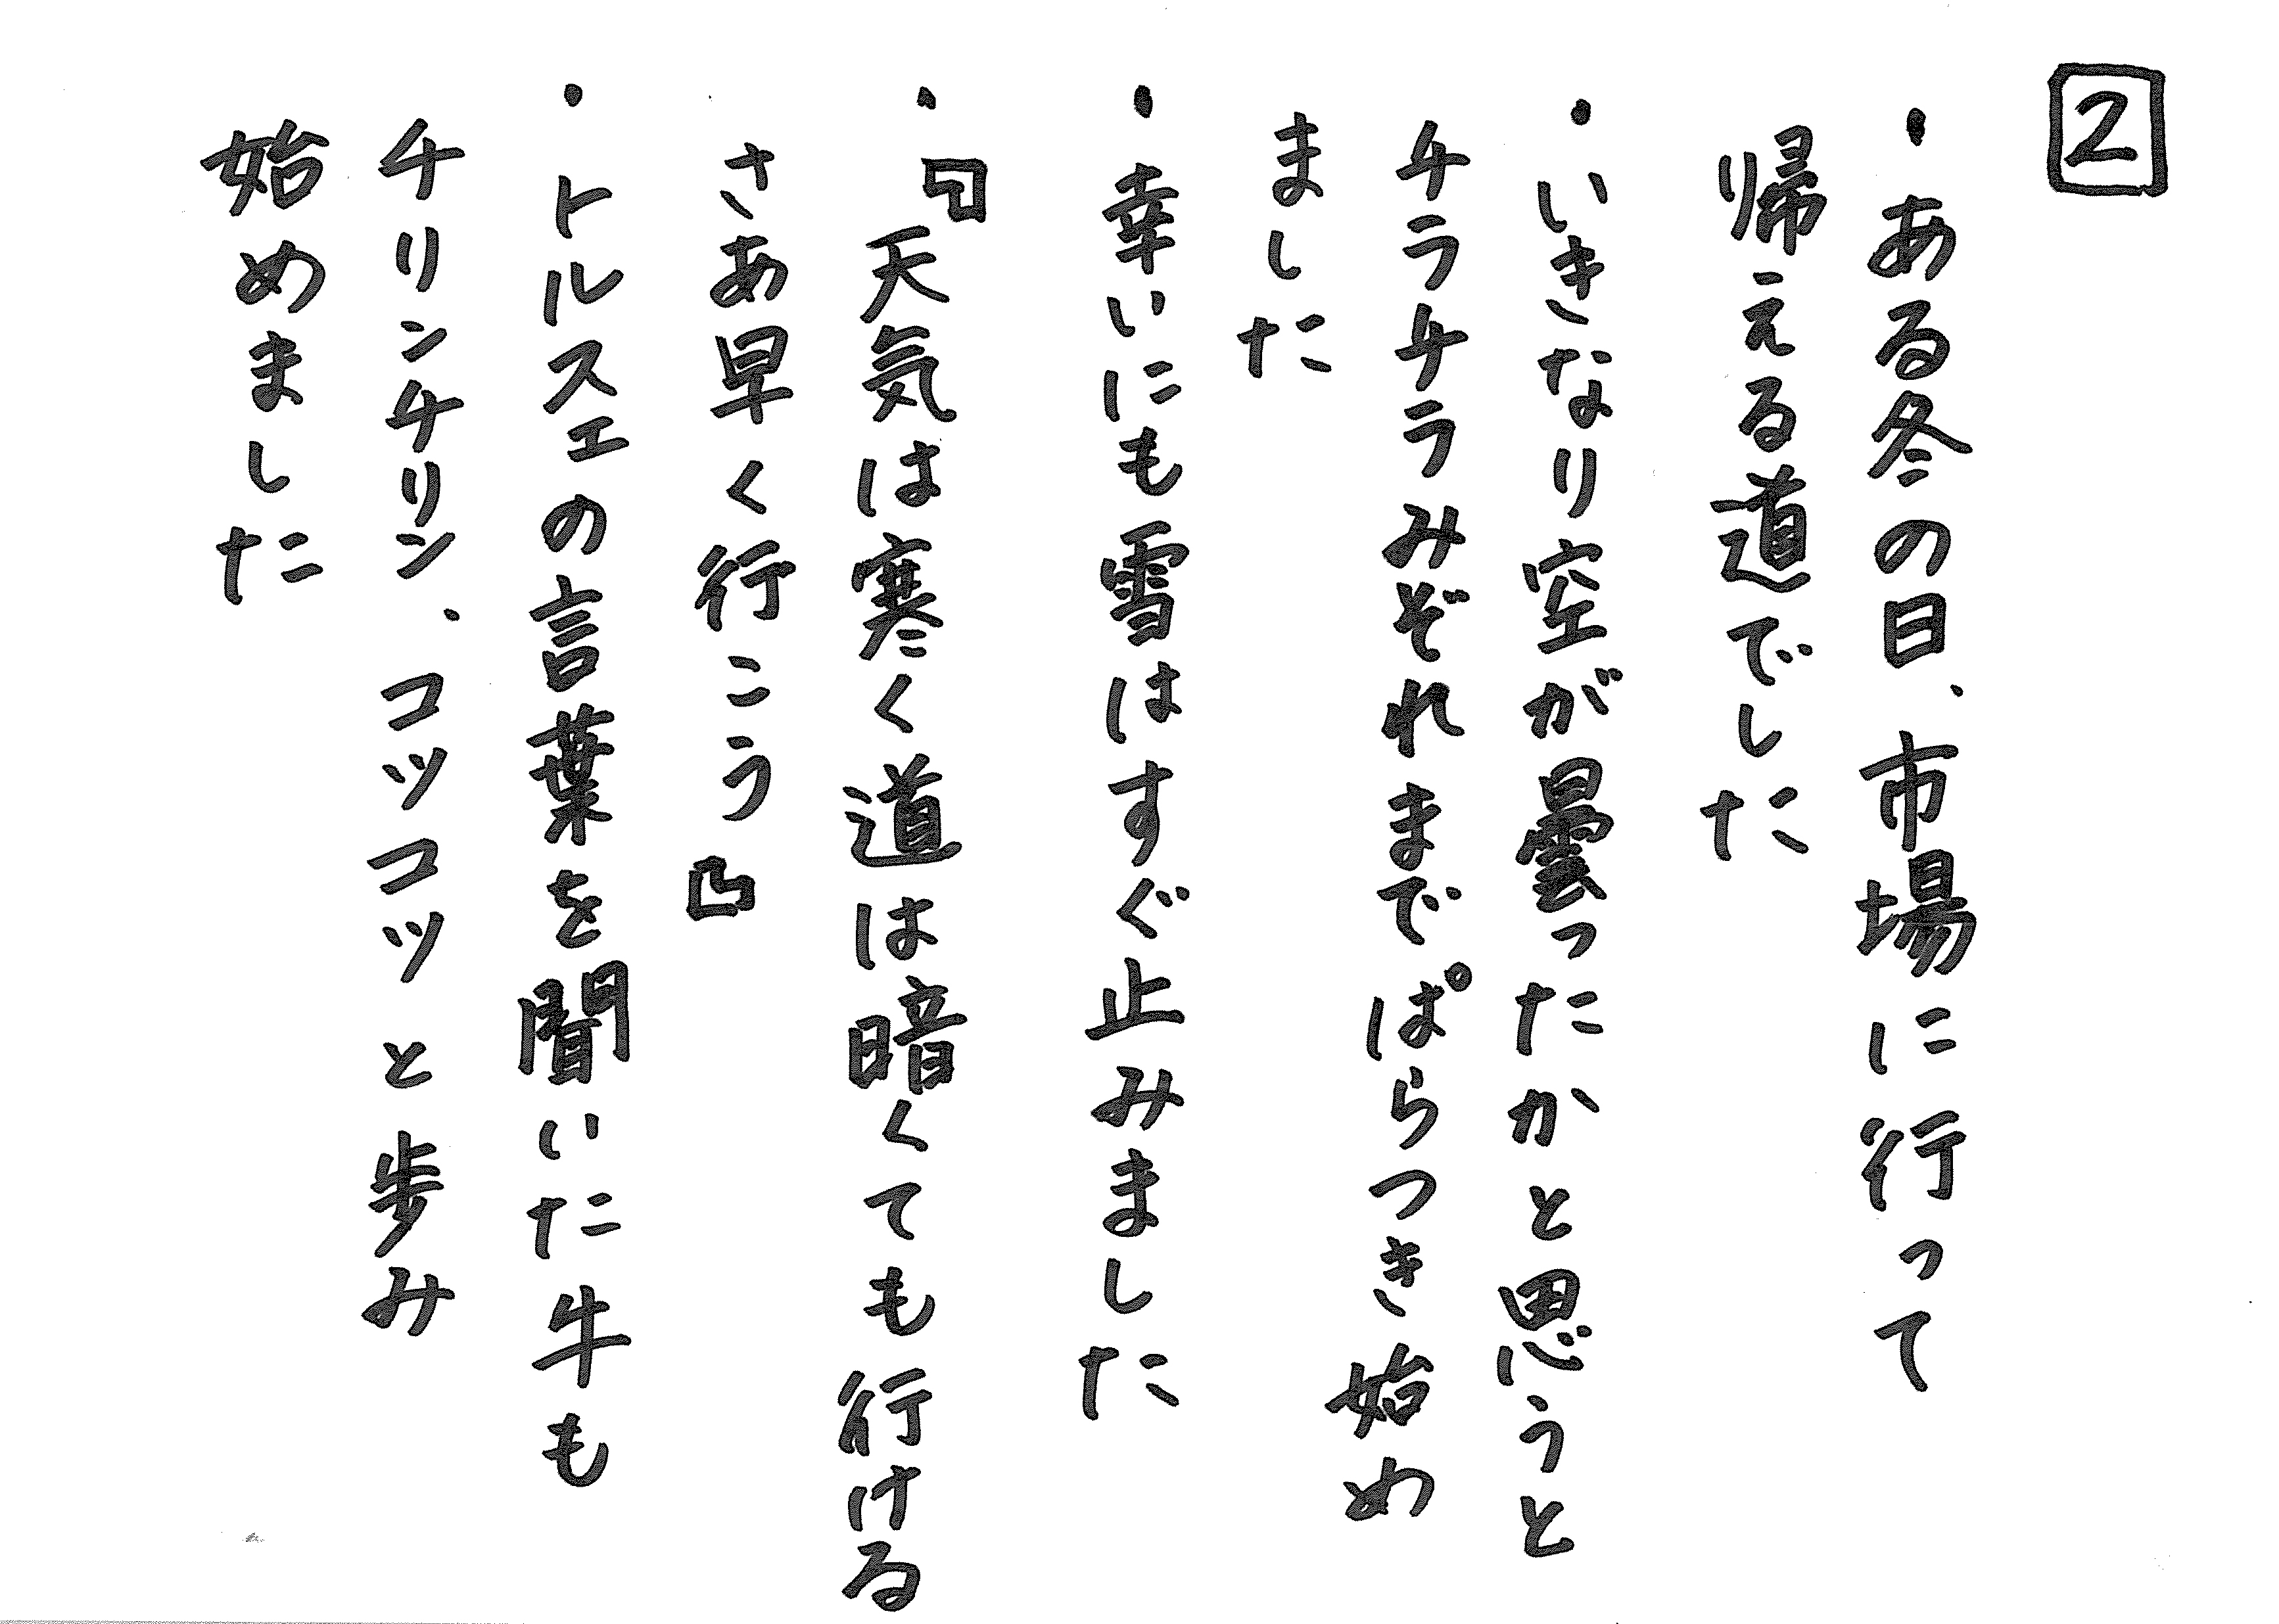 2
・ある冬の日、市場に行って
帰える道でした
・いきなり空が曇ったかと思うと
チラチラみぞれまでぱらつき始め
ました
・幸いにも雪はすぐ止みました
・『天気は寒く道は暗くても行ける
さあ早く行こう』
・トルスェの言葉を聞いた牛も
チリンチリン、コツコツと歩み
始めました